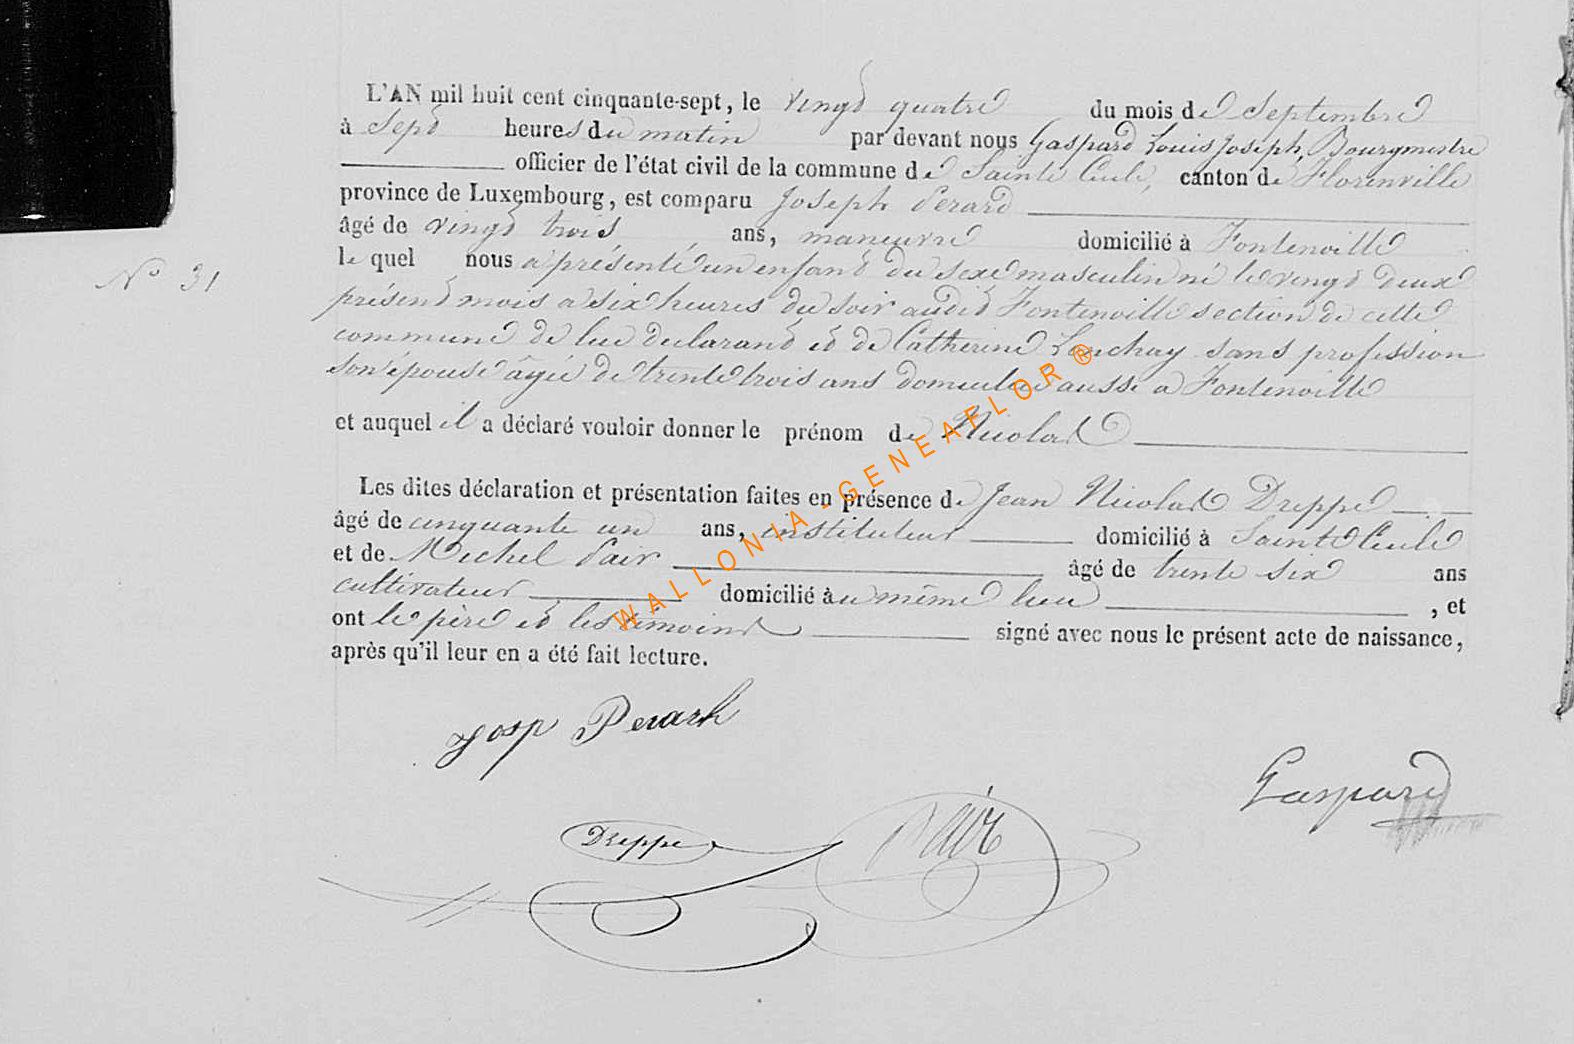 L'AN mil huit cent cinquante-sept, le vingt quatre du mois de Septembre
à Sept heures du matin par devant nous Gaspard Louis Joseph, Bourgmestre
officier de l'état civil de la commune de Sainte Cécile, canton de Florenville
province de Luxembourg, est comparu Joseph Perard
âgé de vingt trois ans, maneuvre domicilié à Fontenoille
le quel nous a présenté un enfant du sexe masculin né le vingt deux
présent mois a six heures du soir audit Fontenoille section de cette
commune de lui déclarant et de Catherine Louchay sans profession
son épouse âgée de trente trois ans domiciliée aussi a Fontenoille
N° 31
et auquel il a déclaré vouloir donner le prénom de Nicolas
Les dites déclaration et présentation faites en présence de Jean Nicolas Dreppe
âgé de cinquante un ans, instituteur domicilié à Sainte Cécile
et de Michel Pair âgé de trente six ans
cultivateur domicilié au même lieu , et
ont le père et les témoins signé avec nous le présent acte de naissance,
après qu'il leur en a été fait lecture.
Josp Perard
Gaspard
Dreppe
Pair
WALLONIA-GENEAFLOR®